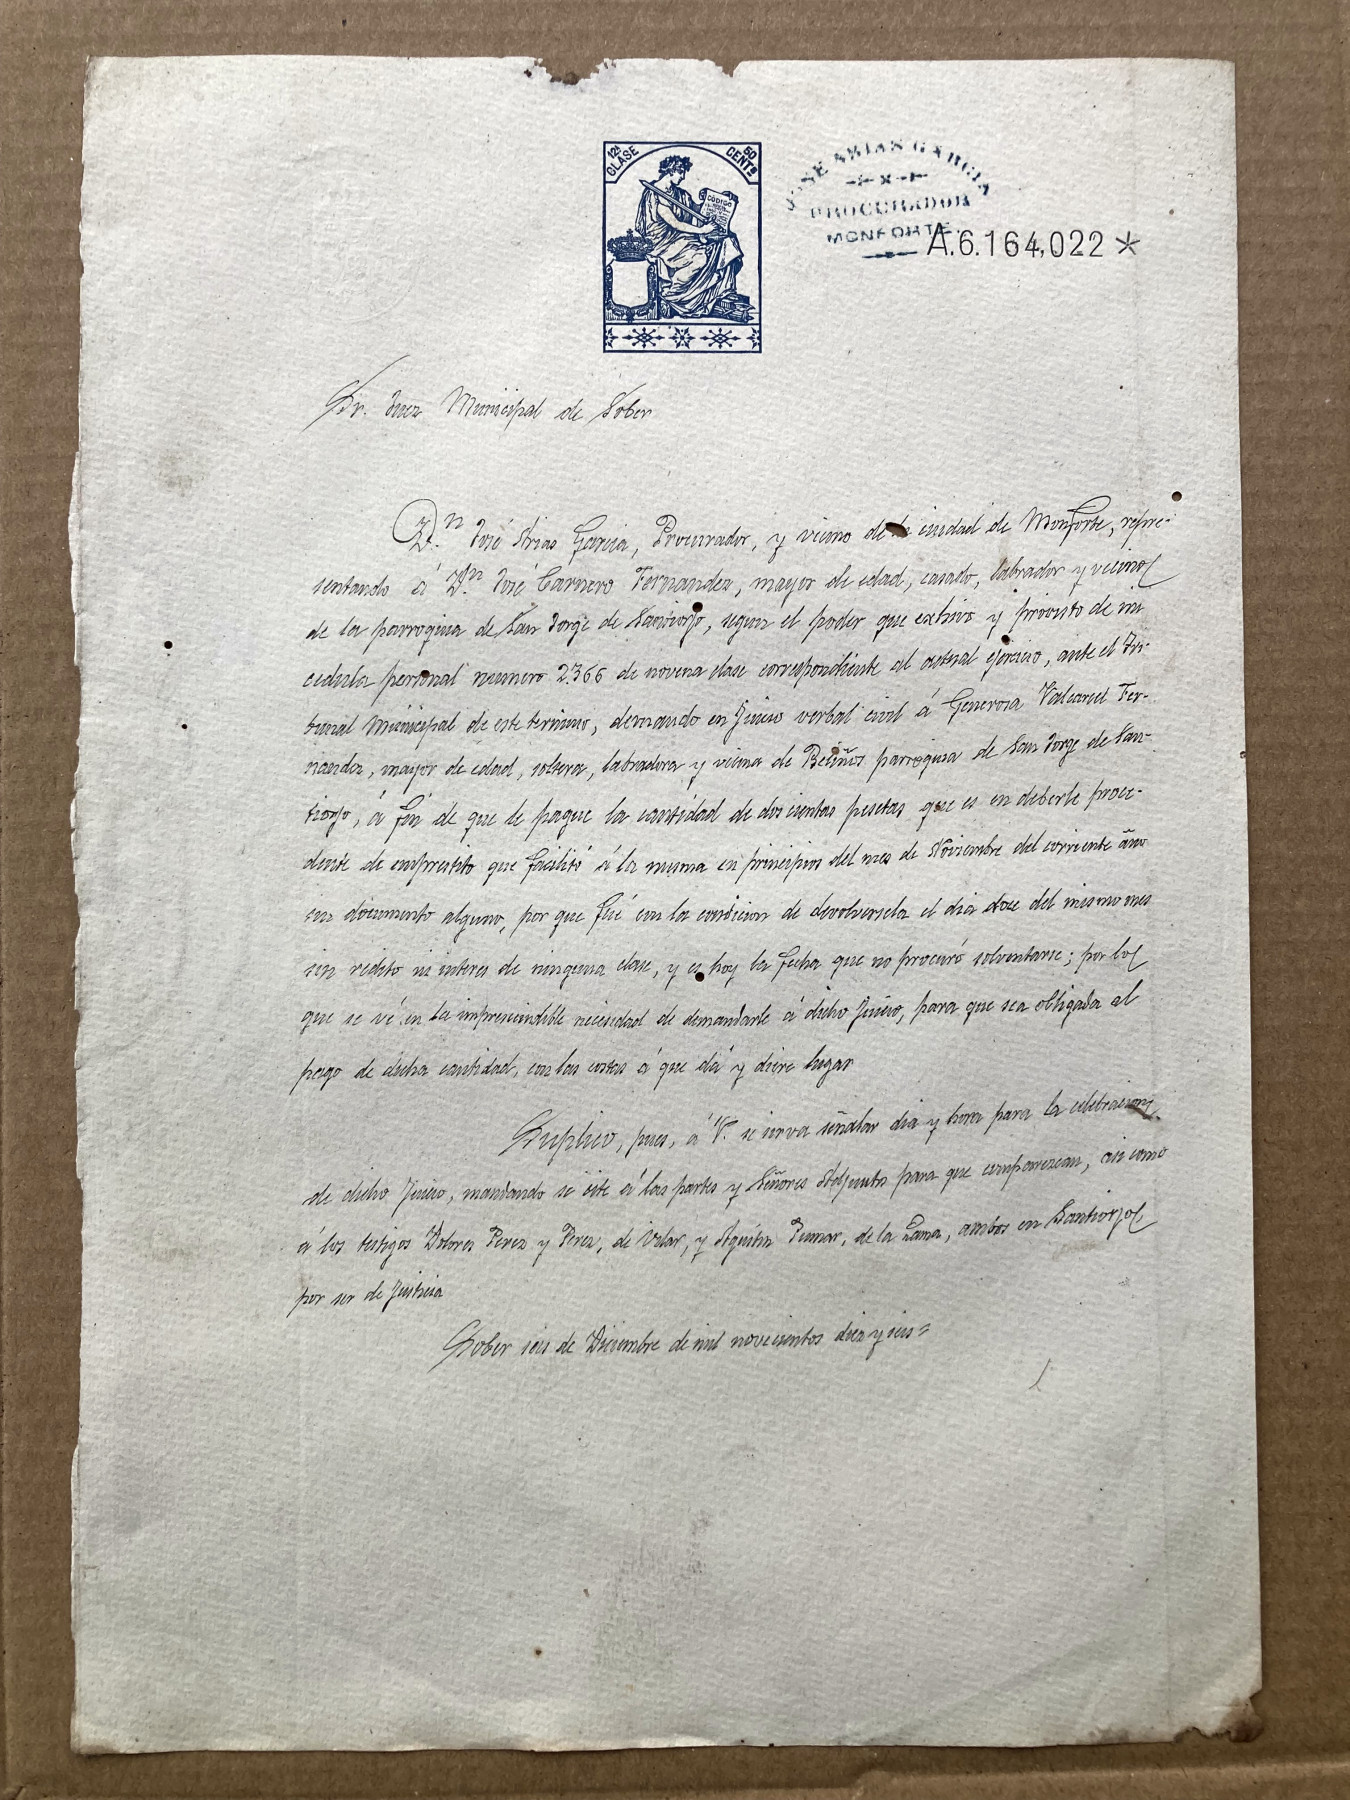 12ª CLASE
50 CENTº
CODIGO
JOSE ARIAS GARCIA
PROCURADOR
MONFORTE
A.6.164,022 *
Sr. Juez Municipal de Sober
D.n José Arias Garcia, Procurador, y vecino de la ciudad de Monforte, repre-
sentando á D.n José Carnero Fernandez, mayor de edad, casado, labrador y vecino
de la parroquia de San Jorge de Santiorjo, segun el poder que exhivo y provisto de mi
cedula personal numero 2.366 de novena clase correspondiente al actual ejercicio, ante el Tri-
bunal Municipal de este termino, demando en Juicio verbal civil á Generosa Valcarcel Fer-
nandez, mayor de edad, soltera, labradora y vecina de parroquia de San Jorge de San-
tiorjo, á fin de que le pague la cantidad de doscientas pesetas que es en deberle proce-
dente de emprestito que facilitó á la misma en principios del mes de Noviembre del corriente año
sin documento alguno, por que fué con la condicion de devolversela el dia doce del mismo mes
sin redito ni interes de ninguna clase, y es hoy la fecha que no procuró solventarse; por lo
que se vé en la imprescindible necesidad de demandarle á dicho Juicio, para que sea obligada al
pago de dicha cantidad, con las costas á que dá y diere lugar
Suplico, pues, á V. se sirva señalar dia y hora para la celebracion
de dicho Juicio, mandando se cite á las partes y Señores Adjuntos para que comparezcan, asi como
á los testigos Dolores Perez y Perez, de Vilar, y Agustin de la Lama, ambos en Santiorjo,
por ser de Justicia
Sober seis de Diciembre de mil novecientos diez y seis=